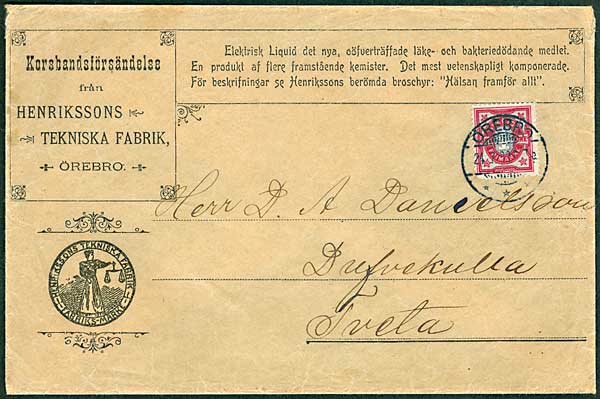 Korsbandsförsändelse
från
HENRIKSSONS
TEKNISKA FABRIK,
ÖREBRO.
Elektrisk Liquid det nya, oöfverträffade läke- och bakteriedödande medlet.
En produkt af flere framstående kemister. Det mest vetenskapligt komponerade.
För beskrifningar se Henrikssons berömda broschyr: "Hälsan framför allt".
ÖREBRO
Herr D. A Danielsson
Dufvekulla
Tveta
HENRIKSSONS TEKNISKA FABRIK
FABRIKS-MÄRKE